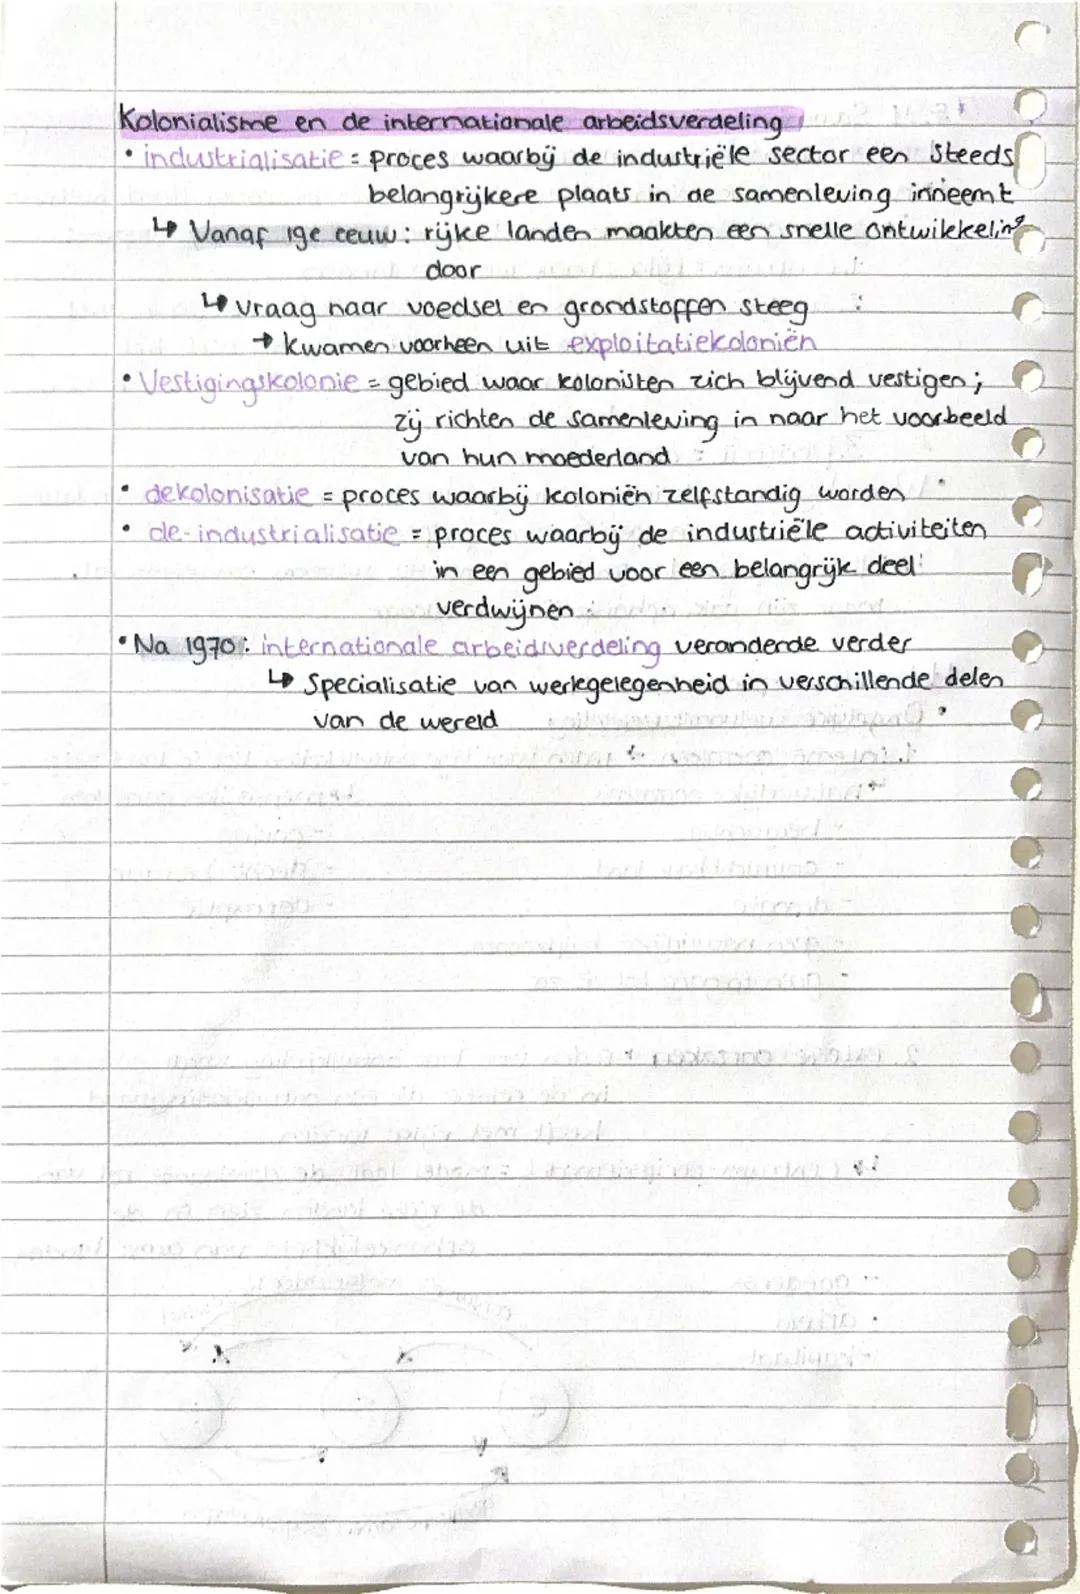 Kolonialisme en de internationale arbeidsverdeling
• industrialisatie = proces waarbij de industriële sector een steeds
belangrijkere plaats in de samenleving inneemt
↳ Vanaf 19e eeuw: rijke landen maakten een snelle ontwikkeling
door
↳ vraag naar voedsel en grondstoffen steeg
→ kwamen voorheen uit exploitatiekoloniën
• Vestigingskolonie = gebied waar kolonisten zich blijvend vestigen;
zij richten de samenleving in naar het voorbeeld
van hun moederland
• dekolonisatie = proces waarbij koloniën zelfstandig worden
• de-industrialisatie = proces waarbij de industriële activiteiten
in een gebied voor een belangrijk deel
verdwijnen
• Na 1970: internationale arbeidsverdeling veranderde verder
↳ Specialisatie van werkgelegenheid in verschillende delen
van de wereld